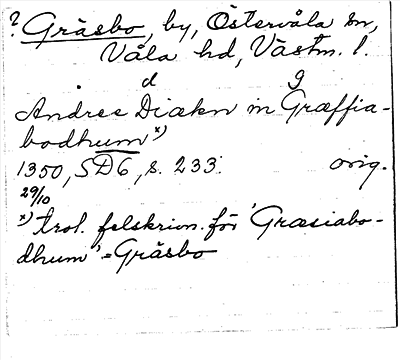 ? Gräsbo, by, Östervåla sn,
Våla hd, Västm. l.
d g
Andree Diækn in Græffia-
bodhum x)
1350, SD6, s. 233. orig.
29/10
x) trol. felskrivn. för 'Græsiabo-
dhum' = Gräsbo